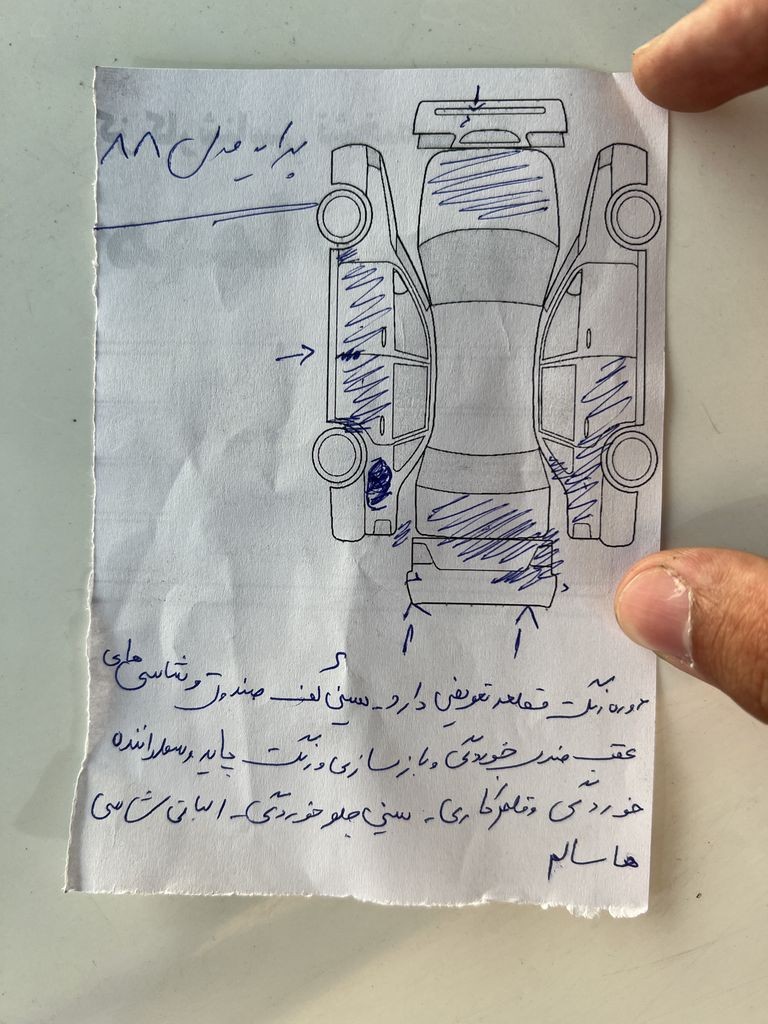 پراید مدل ۸۸
دوره رنگ قطعه تعویض دارد - سینی کف صندوق و شاسی های
عقب ضرب خوردگی و بازسازی و رنگ پایه وسط راننده
خوردگی و قلم کاری - سینی جلو خوردگی - الباقی شاسی
ها سالم